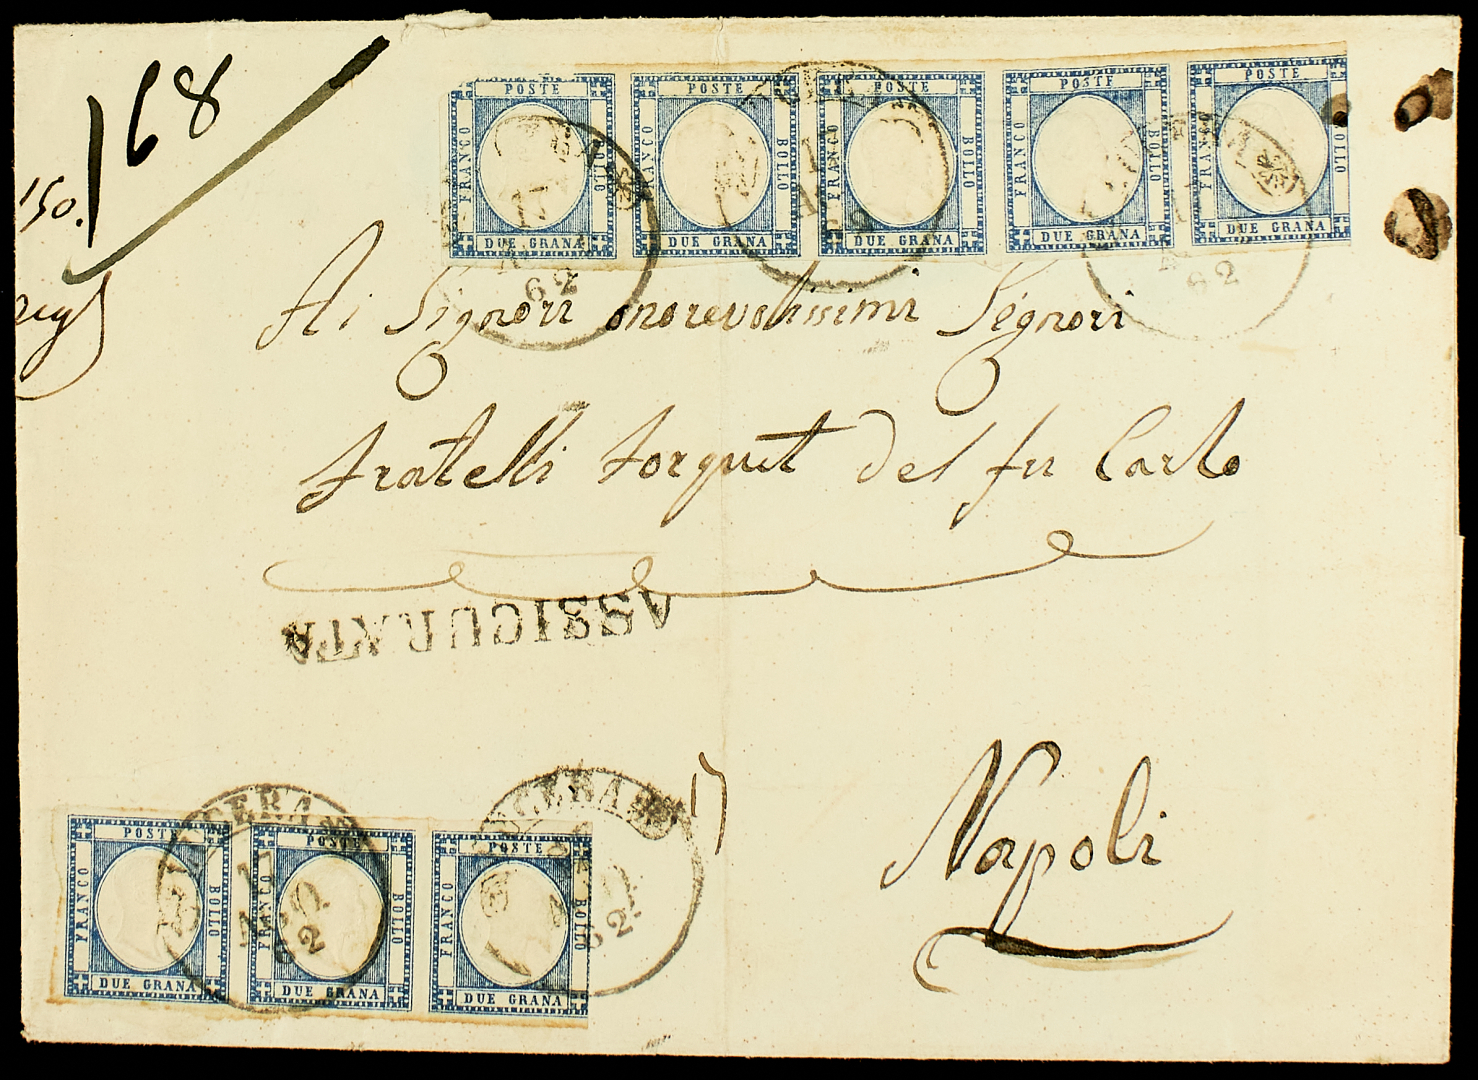 168
150.
POSTE POSTE POSTE POSTE POSTE
FRANCO BOLLO FRANCO BOLLO FRANCO BOLLO FRANCO BOLLO FRANCO BOLLO
DUE GRANA DUE GRANA DUE GRANA DUE GRANA DUE GRANA
17
62
62
62
Ai Signori onorevolissimi Signori
fratelli Torquet del fu Carlo
ASSICURATA
Napoli
LUCERA LUCERA
17 AGO 62
62
POSTE POSTE POSTE
FRANCO BOLLO FRANCO BOLLO FRANCO BOLLO
DUE GRANA DUE GRANA DUE GRANA